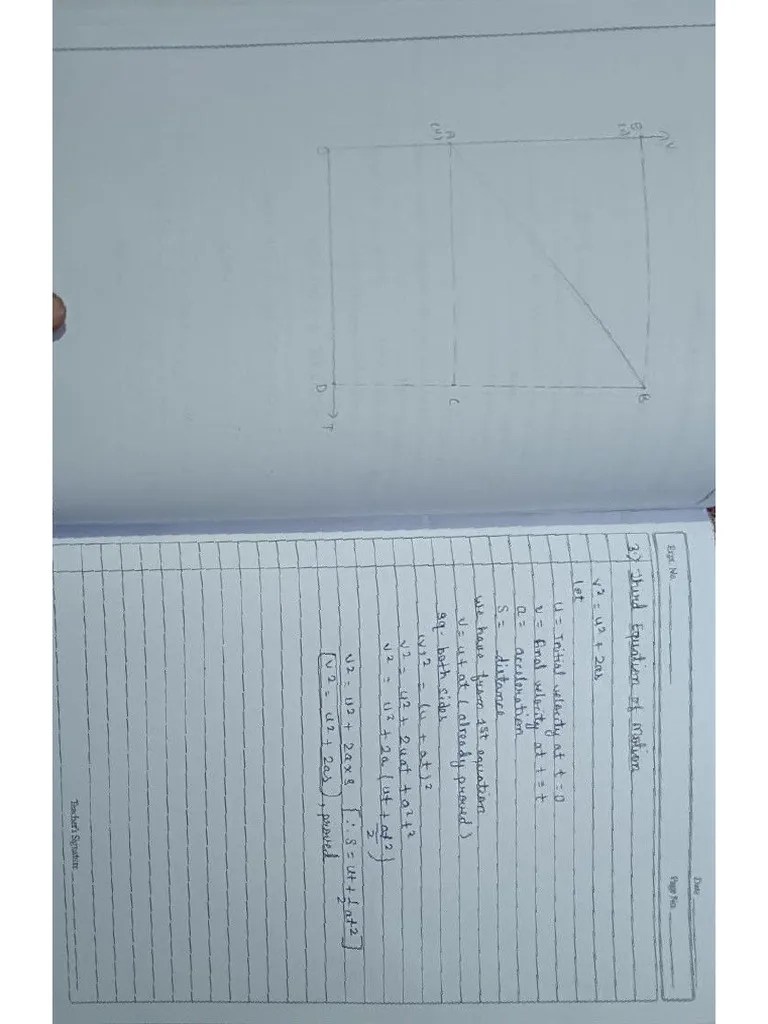 V
E
(v)
B
A
(u)
C
O
D
T
Expt. No.
Date
Page No.
3.) Third Equation of Motion
v² = u² + 2as
let
u = Initial velocity at t = 0
v = final velocity at t = t
a = acceleration
S = distance
We have from 1st equation
v = u + at (already proved)
sq. both sides
(v)² = (u + at)²
v² = u² + 2uat + a²t²
v² = u² + 2a (ut + at²/2)
v² = u² + 2a×s [∴ s = ut + 1/2 at²]
[v² = u² + 2as], proved
Teacher's Signature